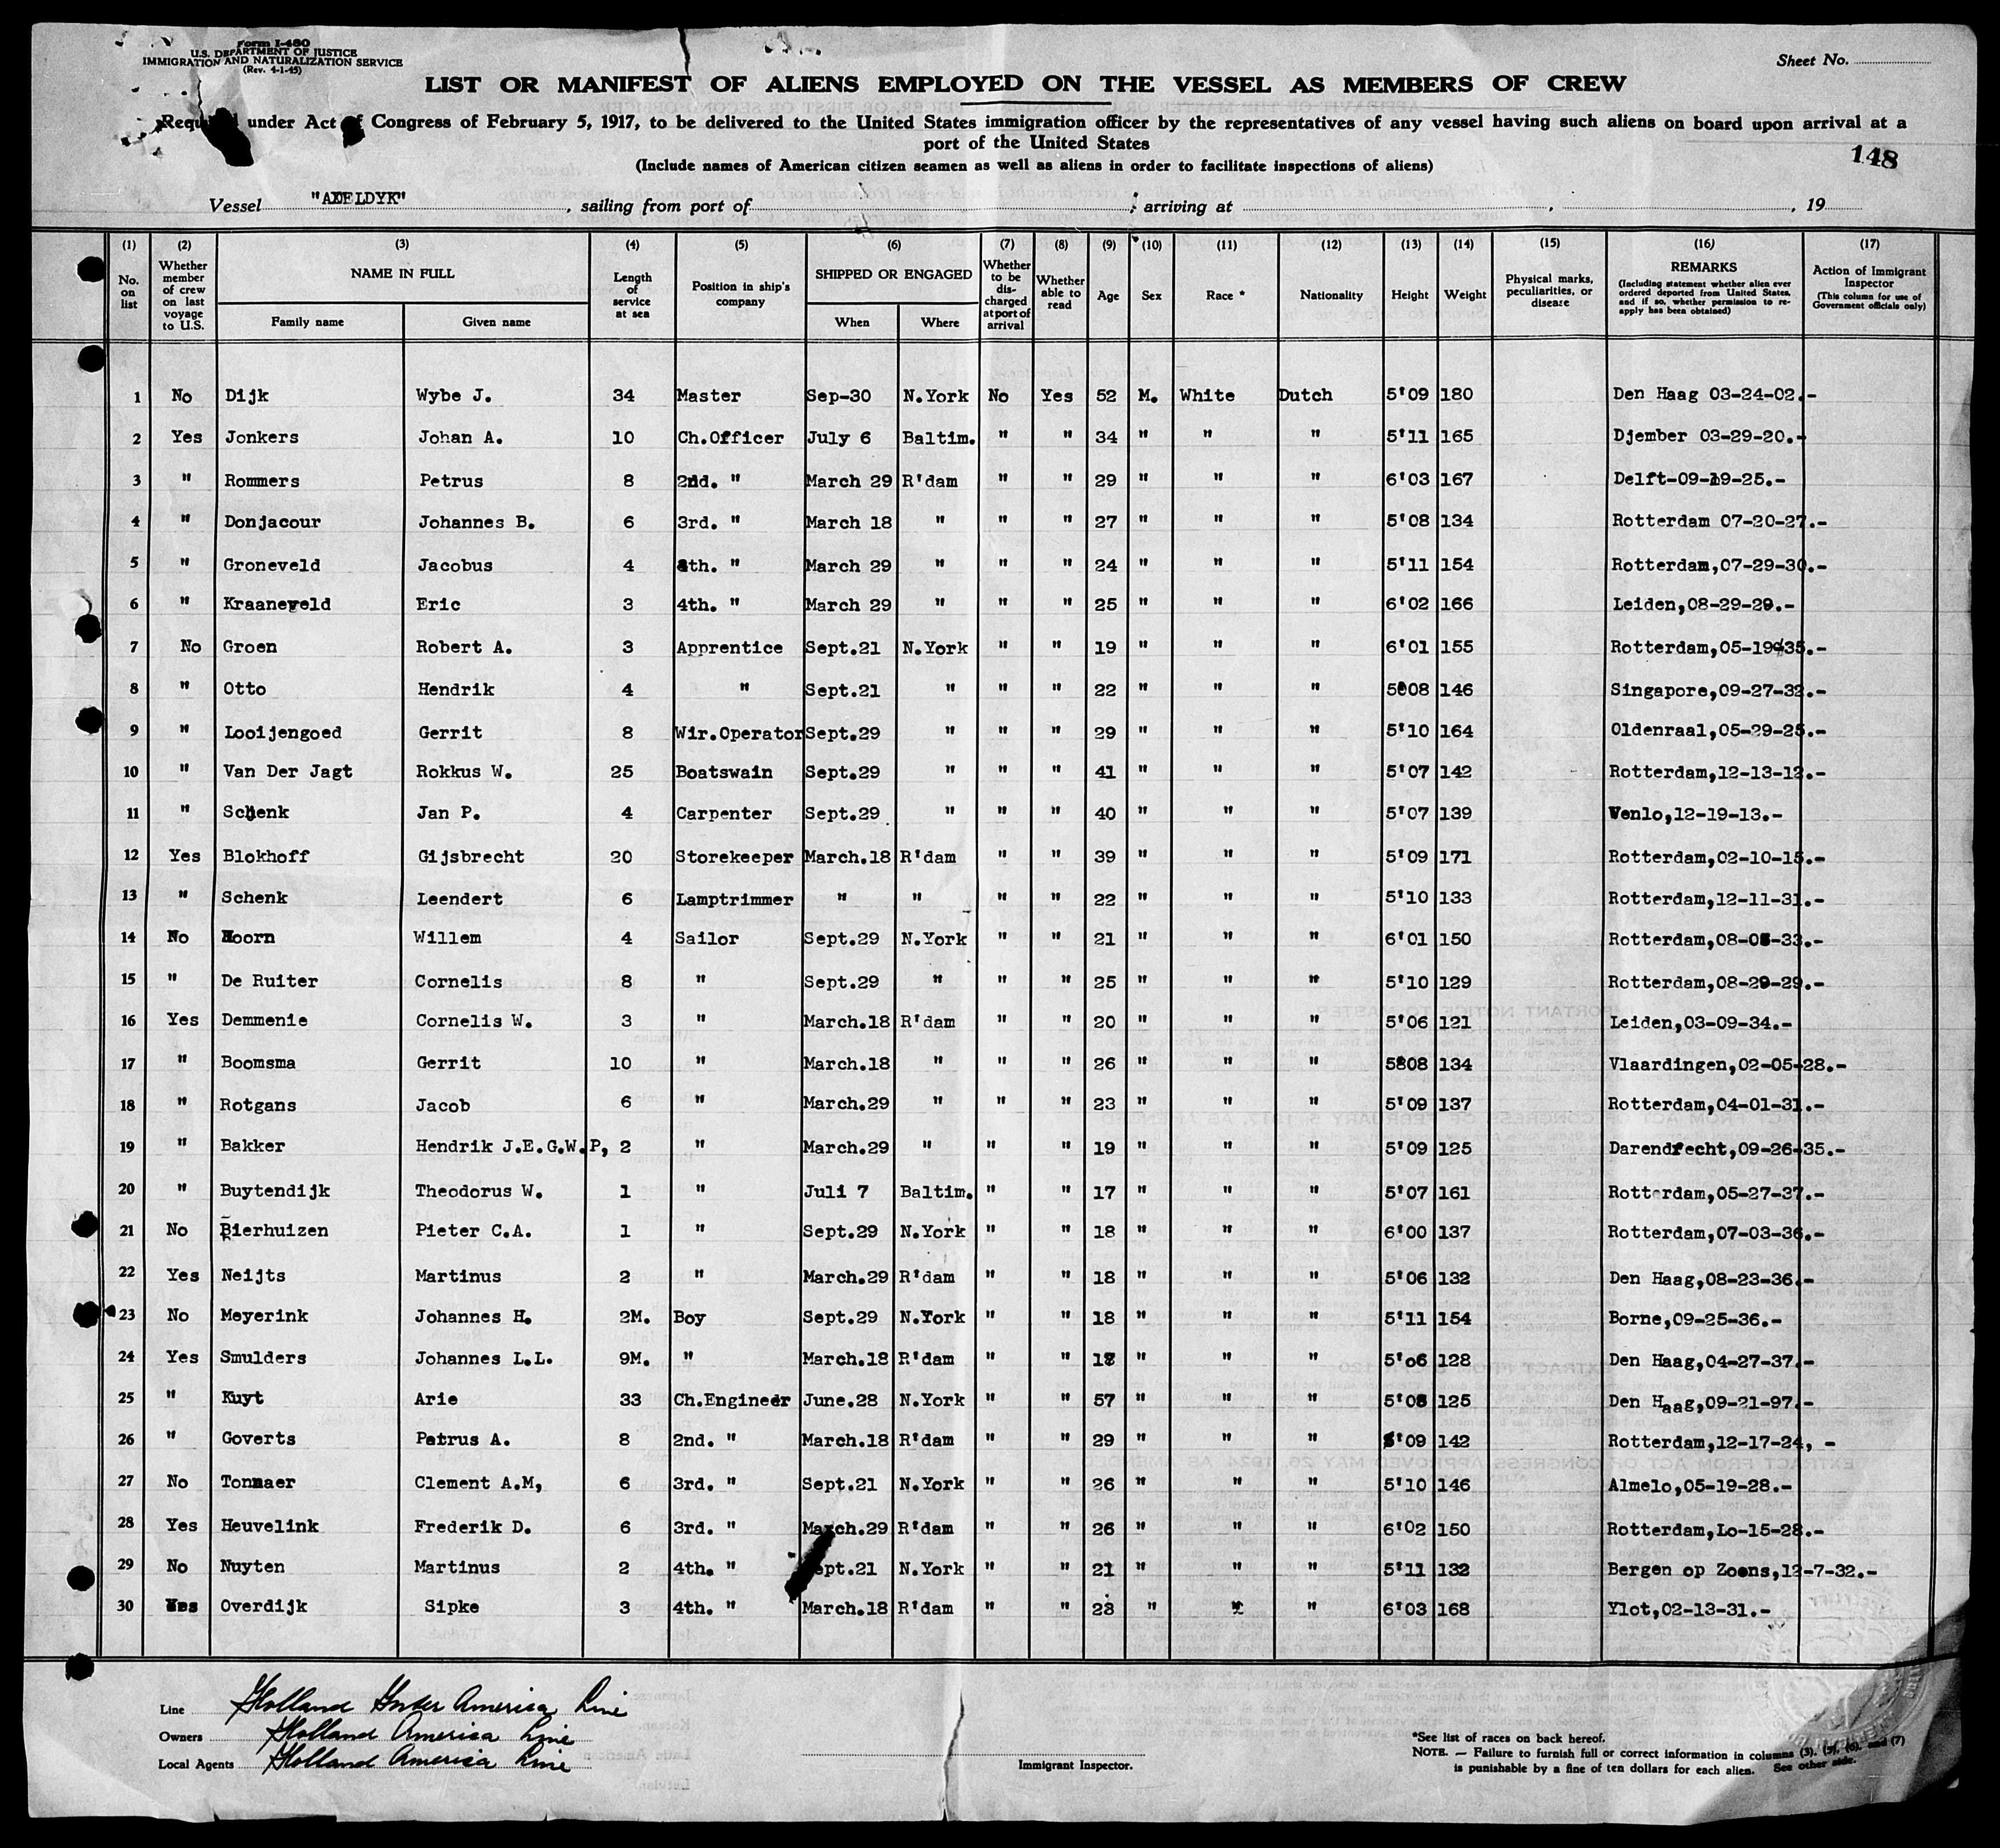 Form I-480
U.S. DEPARTMENT OF JUSTICE
IMMIGRATION AND NATURALIZATION SERVICE
(Rev. 4-1-45)
Sheet No.
LIST OR MANIFEST OF ALIENS EMPLOYED ON THE VESSEL AS MEMBERS OF CREW
Required under Act of Congress of February 5, 1917, to be delivered to the United States immigration officer by the representatives of any vessel having such aliens on board upon arrival at a
port of the United States
(Include names of American citizen seamen as well as aliens in order to facilitate inspections of aliens)
148
Vessel , sailing from port of ; arriving at , , 19
(1) (2) (3) (4) (5) (6) (7) (8) (9) (10) (11) (12) (13) (14) (15) (16) (17)
No. on list
Whether member of crew on last voyage to U.S.
NAME IN FULL
Family name
Given name
Length of service at sea
Position in ship's company
SHIPPED OR ENGAGED
When
Where
Whether to be discharged at port of arrival
Whether able to read
Age
Sex
Race *
Nationality
Height
Weight
Physical marks, peculiarities, or disease
REMARKS
(Including statement whether alien ever ordered deported from United States, and if so, whether permission to reapply has been obtained)
Action of Immigrant Inspector
(This column for use of Government officials only)
1 No Dijk Wybe J. 34 Master Sep-30 N.York No Yes 52 M. White Dutch 5'09 180 Den Haag 03-24-02.-
2 Yes Jonkers Johan A. 10 Ch.Officer July 6 Baltim. " " 34 " " " 5'11 165 Djember 03-29-20.-
3 " Rommers Petrus 8 2nd. " March 29 R'dam " " 29 " " " 6'03 167 Delft-09-19-25.-
4 " Donjacour Johannes B. 6 3rd. " March 18 " " " 27 " " " 5'08 134 Rotterdam 07-20-27.-
5 " Groneveld Jacobus 4 4th. " March 29 " " " 24 " " " 5'11 154 Rotterdam,07-29-30.-
6 " Kraaneveld Eric 3 4th. " March 29 " " " 25 " " " 6'02 166 Leiden,08-29-29.-
7 No Groen Robert A. 3 Apprentice Sept.21 N.York " " 19 " " " 6'01 155 Rotterdam,05-19-35.-
8 " Otto Hendrik 4 " Sept.21 " " " 22 " " " 5'08 146 Singapore,09-27-32.-
9 " Looijengoed Gerrit 8 Wir.Operator Sept.29 " " " 29 " " " 5'10 164 Oldenraal,05-29-25.-
10 " Van Der Jagt Rokkus W. 25 Boatswain Sept.29 " " " 41 " " " 5'07 142 Rotterdam,12-13-12.-
11 " Schenk Jan P. 4 Carpenter Sept.29 " " " 40 " " " 5'07 139 Venlo,12-19-13.-
12 Yes Blokhoff Gijsbrecht 20 Storekeeper March.18 R'dam " " 39 " " " 5'09 171 Rotterdam,02-10-15.-
13 " Schenk Leendert 6 Lamptrimmer " " " " 22 " " " 5'10 133 Rotterdam,12-11-31.-
14 No Hoorn Willem 4 Sailor Sept.29 N.York " " 21 " " " 6'01 150 Rotterdam,
15 " De Ruiter Cornelis 8 " Sept.29 " " " 25 " " " 5'10 129 Rotterdam,08-29-29.-
16 Yes Demmenie Cornelis W. 3 " March.18 R'dam " " 20 " " " 5'06 121 Leiden,03-09-34.-
17 " Boomsma Gerrit 10 " March.18 " " " 26 " " " 5'08 134 Vlaardingen,02-05-28.-
18 " Rotgans Jacob 6 " March.29 " " " 23 " " " 5'09 137 Rotterdam,04-01-31.-
19 " Bakker Hendrik J.E.G.W.P, 2 " March.29 " " " 19 " " " 5'09 125 Darendrecht,09-26-35.-
20 " Buytendijk Theodorus W. 1 " Juli 7 Baltim. " " 17 " " " 5'07 161 Rotterdam,05-27-37.-
21 No Bierhuizen Pieter C.A. 1 " Sept.29 N.York " " 18 " " " 6'00 137 Rotterdam,07-03-36.-
22 Yes Neijts Martinus 2 " March.29 R'dam " " 18 " " " 5'06 132 Den Haag,08-23-36.-
23 No Meyerink Johannes H. 2M. Boy Sept.29 N.York " " 18 " " " 5'11 154 Borne,09-25-36.-
24 Yes Smulders Johannes L.L. 9M. " March.18 R'dam " " " " " 5'o6 128 Den Haag,04-27-37.-
25 " Kuyt Arie 33 Ch.Engineer June.28 N.York " " 57 " " " 5'08 125 Den Haag,09-21-97.-
26 " Goverts Petrus A. 8 2nd. " March.18 R'dam " " 29 " " " 5'09 142 Rotterdam,12-17-24, -
27 No Tonnaer Clement A.M, 6 3rd. " Sept.21 N.York " " 26 " " " 5'10 146 Almelo,05-19-28.-
28 Yes Heuvelink Frederik D. 6 3rd. " March.29 R'dam " " 26 " " " 6'02 150 Rotterdam,Lo-15-28.-
29 No Nuyten Martinus 2 4th. " Sept.21 N.York " " 21 " " " 5'11 132 Bergen op Zoons,12-7-32.-
30 Yes Overdijk Sipke 3 4th. " March.18 R'dam " " 23 " " " 6'03 168 Ylot,02-13-31.-
Line Holland Inter America Line
Owners Holland America Line
Local Agents Holland America Line
Immigrant Inspector.
*See list of races on back hereof.
NOTE. — Failure to furnish full or correct information in columns (3), (5), (6), and (7)
is punishable by a fine of ten dollars for each alien. See other side.